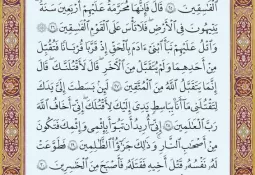 ٱلۡفَٰسِقِينَ ۝٢٥ قَالَ فَإِنَّهَا مُحَرَّمَةٌ عَلَيۡهِمۡۛ أَرۡبَعِينَ سَنَةٗۛ
يَتِيهُونَ فِي ٱلۡأَرۡضِۚ فَلَا تَأۡسَ عَلَى ٱلۡقَوۡمِ ٱلۡفَٰسِقِينَ ۝٢٦
۞ وَٱتۡلُ عَلَيۡهِمۡ نَبَأَ ٱبۡنَيۡ ءَادَمَ بِٱلۡحَقِّ إِذۡ قَرَّبَا قُرۡبَانٗا فَتُقُبِّلَ
مِنۡ أَحَدِهِمَا وَلَمۡ يُتَقَبَّلۡ مِنَ ٱلۡأٓخَرِ قَالَ لَأَقۡتُلَنَّكَۖ قَالَ
إِنَّمَا يَتَقَبَّلُ ٱللَّهُ مِنَ ٱلۡمُتَّقِينَ ۝٢٧ لَئِنۢ بَسَطتَ إِلَيَّ يَدَكَ
لِتَقۡتُلَنِي مَآ أَنَا۠ بِبَاسِطٖ يَدِيَ إِلَيۡكَ لِأَقۡتُلَكَۖ إِنِّيٓ أَخَافُ ٱللَّهَ
رَبَّ ٱلۡعَٰلَمِينَ ۝٢٨ إِنِّيٓ أُرِيدُ أَن تَبُوٓأَ بِإِثۡمِي وَإِثۡمِكَ فَتَكُونَ
مِنۡ أَصۡحَٰبِ ٱلنَّارِۚ وَذَٰلِكَ جَزَٰٓؤُاْ ٱلظَّٰلِمِينَ ۝٢٩ فَطَوَّعَتۡ
لَهُۥ نَفۡسُهُۥ قَتۡلَ أَخِيهِ فَقَتَلَهُۥ فَأَصۡبَحَ مِنَ ٱلۡخَٰسِرِينَ ۝٣٠